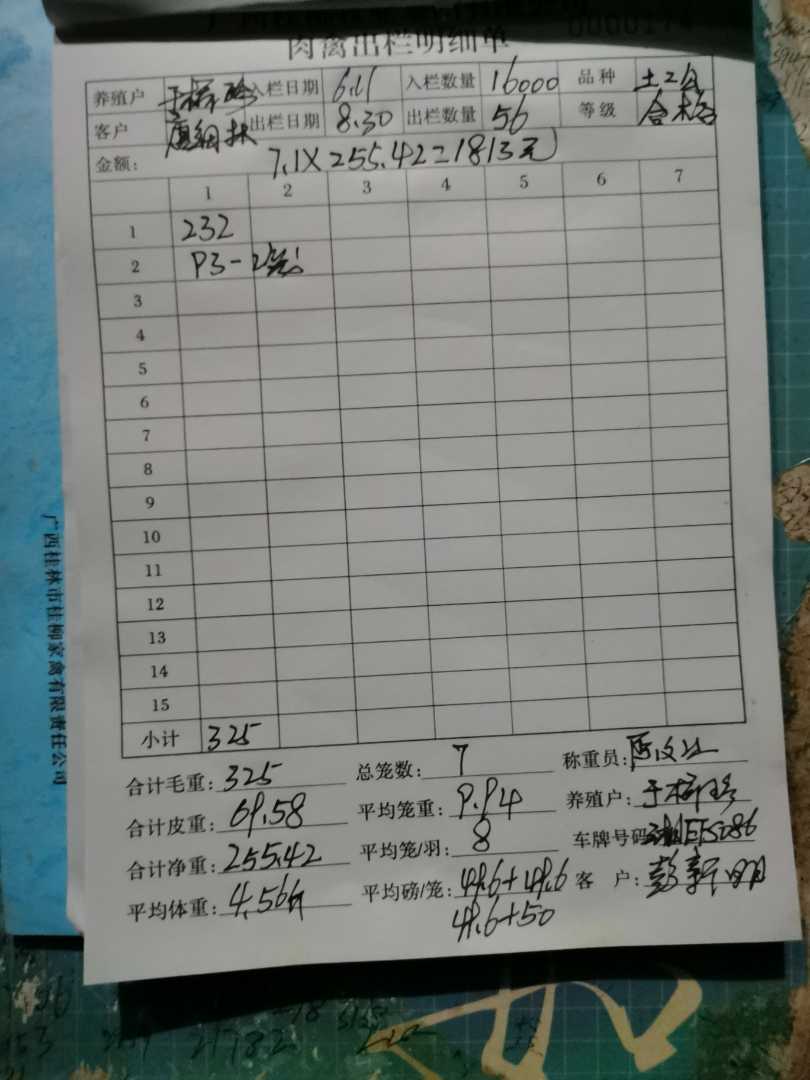 肉禽出栏明细单
养殖户 入栏日期 6.11 入栏数量 16000 品种 土2公
客户 出栏日期 8.30 出栏数量 56 等级 合格
金额: 7.1X255.42=1813元
1 2 3 4 5 6 7
1 232
2 93-2筐
3
4
5
6
7
8
9
10
11
12
13
14
15
小计 325
合计毛重: 325 总笼数: 7 称重员:
合计皮重: 69.58 平均笼重: 9.94 养殖户:
合计净重: 255.42 平均笼/羽: 8 车牌号码
平均体重: 4.56斤 平均磅/笼: 49.6+49.6 客 户: 彭新明
49.6+50
广西桂林市桂柳家禽有限责任公司